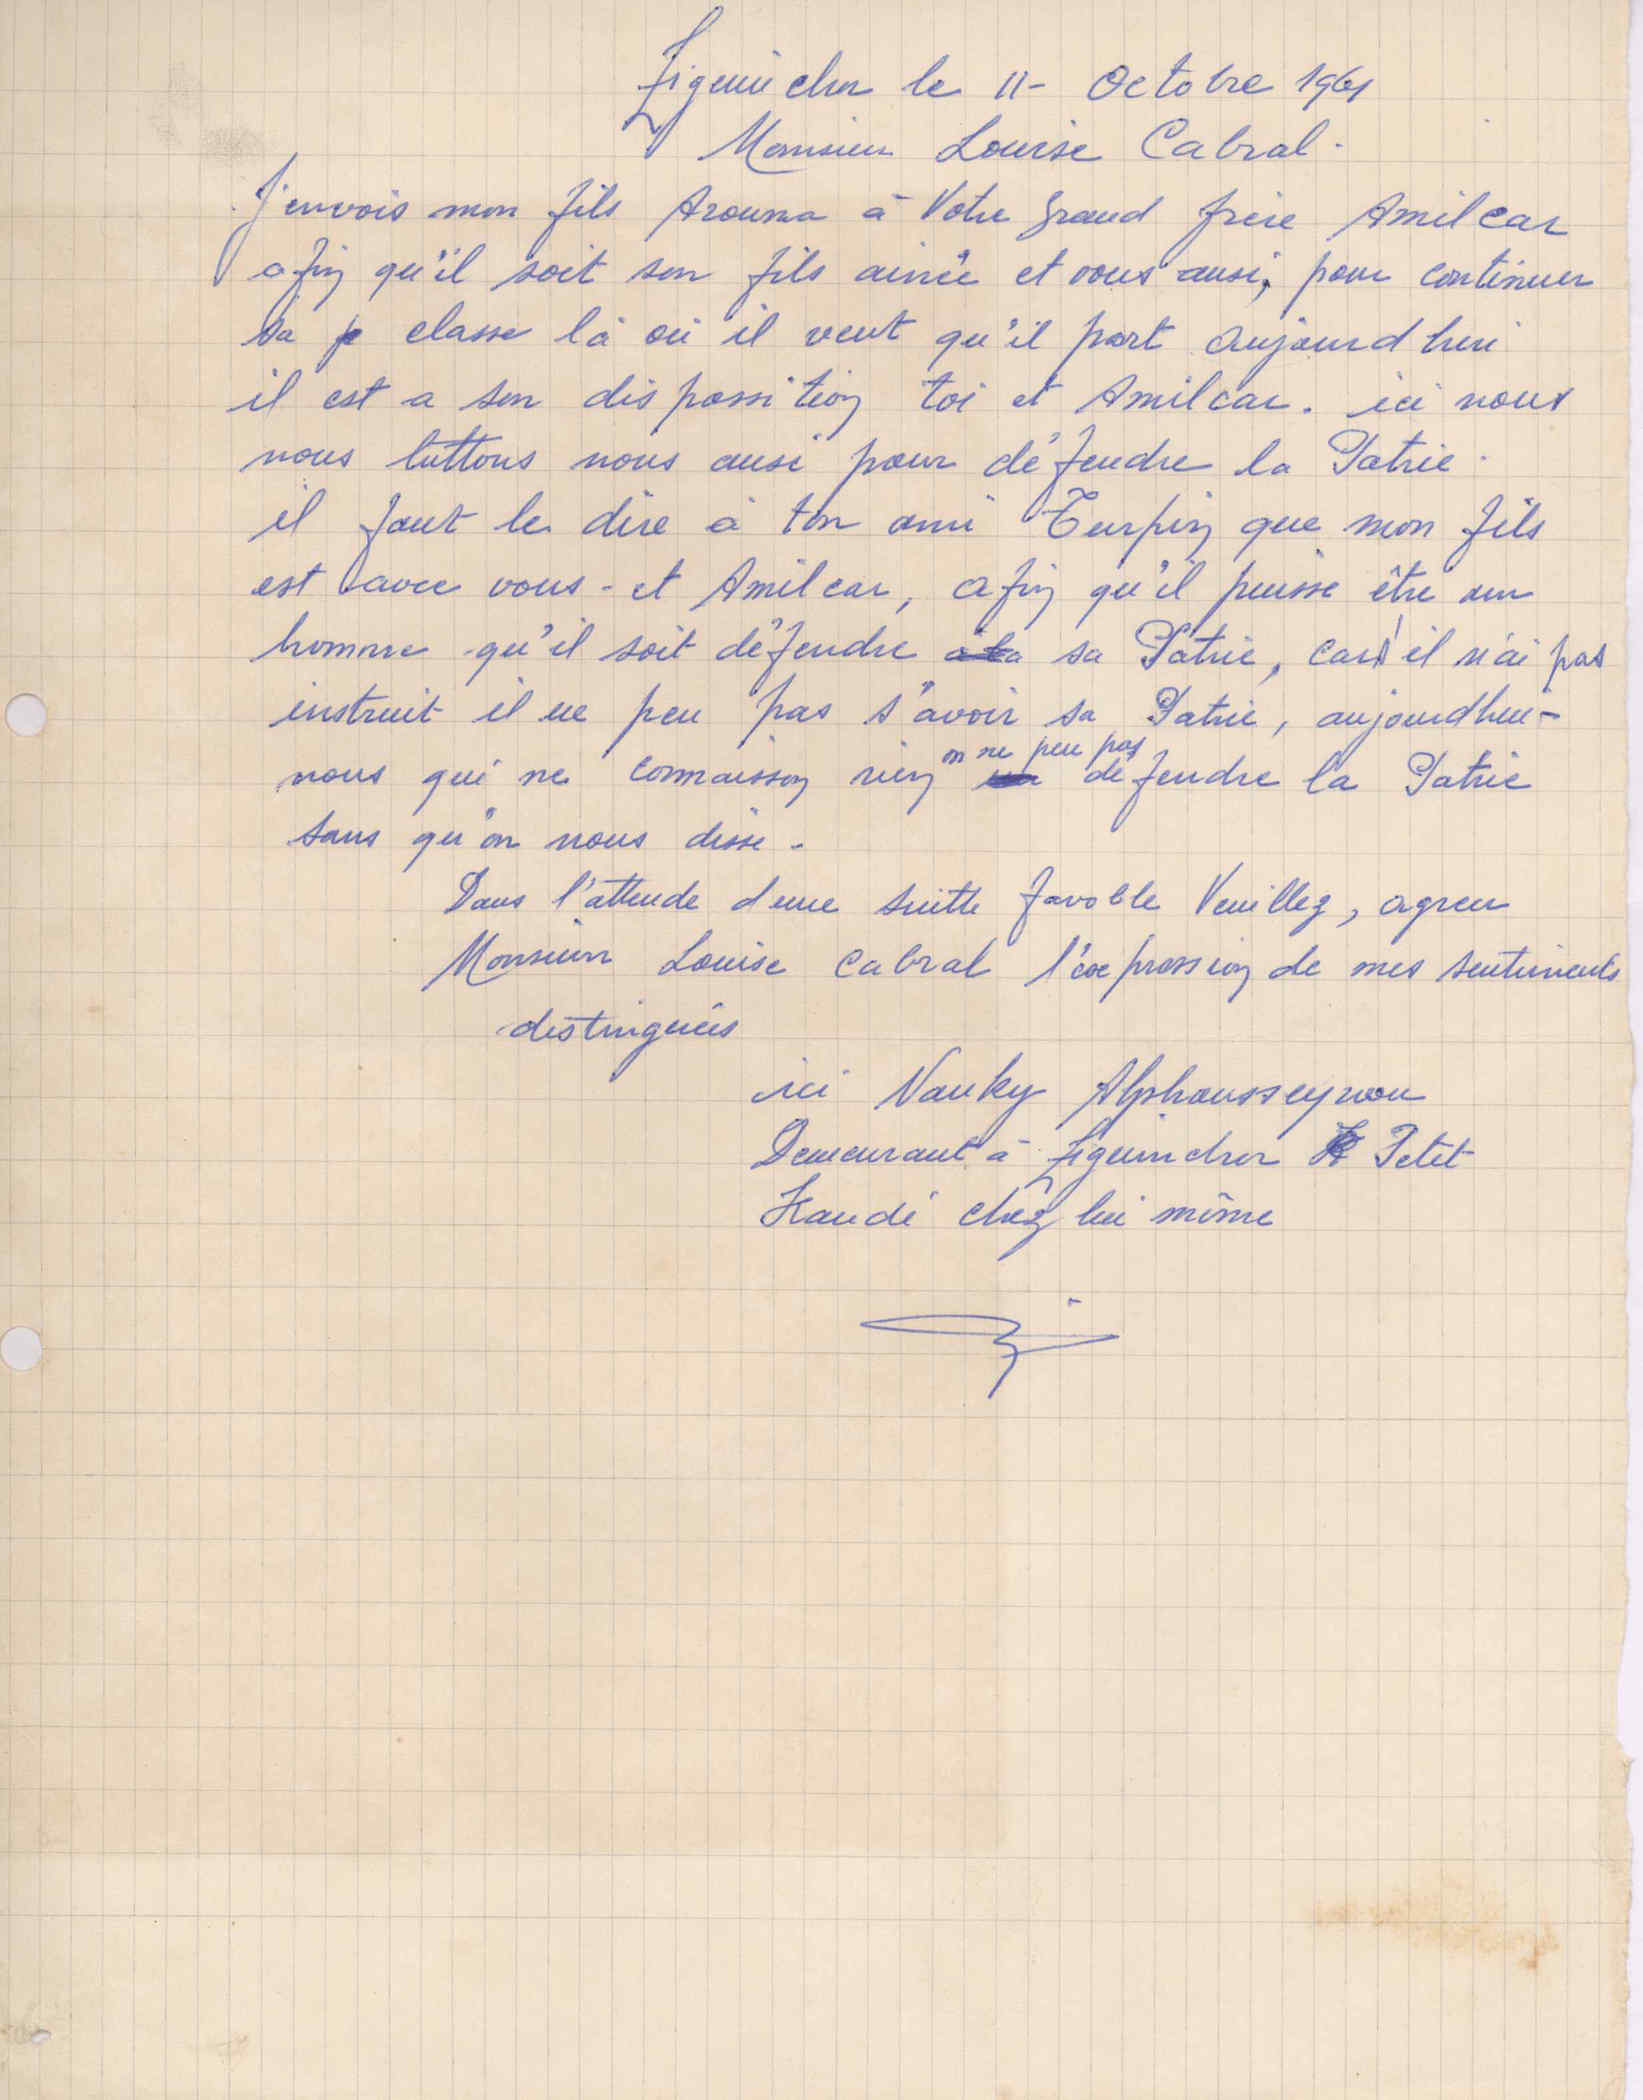 Ziguinchor le 11- Octobre 1961
Monsieur Louise Cabral.
J'envois mon fils Arouna à Votre Grand frère Amilcar
afin qu'il soit son fils ainée et vous ausi, pour continuer
sa classe là où il veut qu'il part aujourd'hui
il est a son dispossition toi et Amilcar. ici nous
nous luttons nous ausi pour défendre la Patrie.
il faut le dire à ton ami Turpin que mon fils
est avec vous - et Amilcar, afin qu'il puisse être un
homme qu'il soit défendre sa Patrie, car il n'ai pas
instruit il ne peu pas s'avoir sa Patrie, aujourd'hui -
nous qui ne connaisson rien on ne peu pas défendre la Patrie
sans qu'on nous disse.
Dans l'attende d'une suitte favoble Veuillez, agreer
Monsieur Louise Cabral l'expression de mes sentiments
distinguées
ici Nanky Alphousseynou
Demeurant à Ziguinchor Petit
Kandé chez lui même